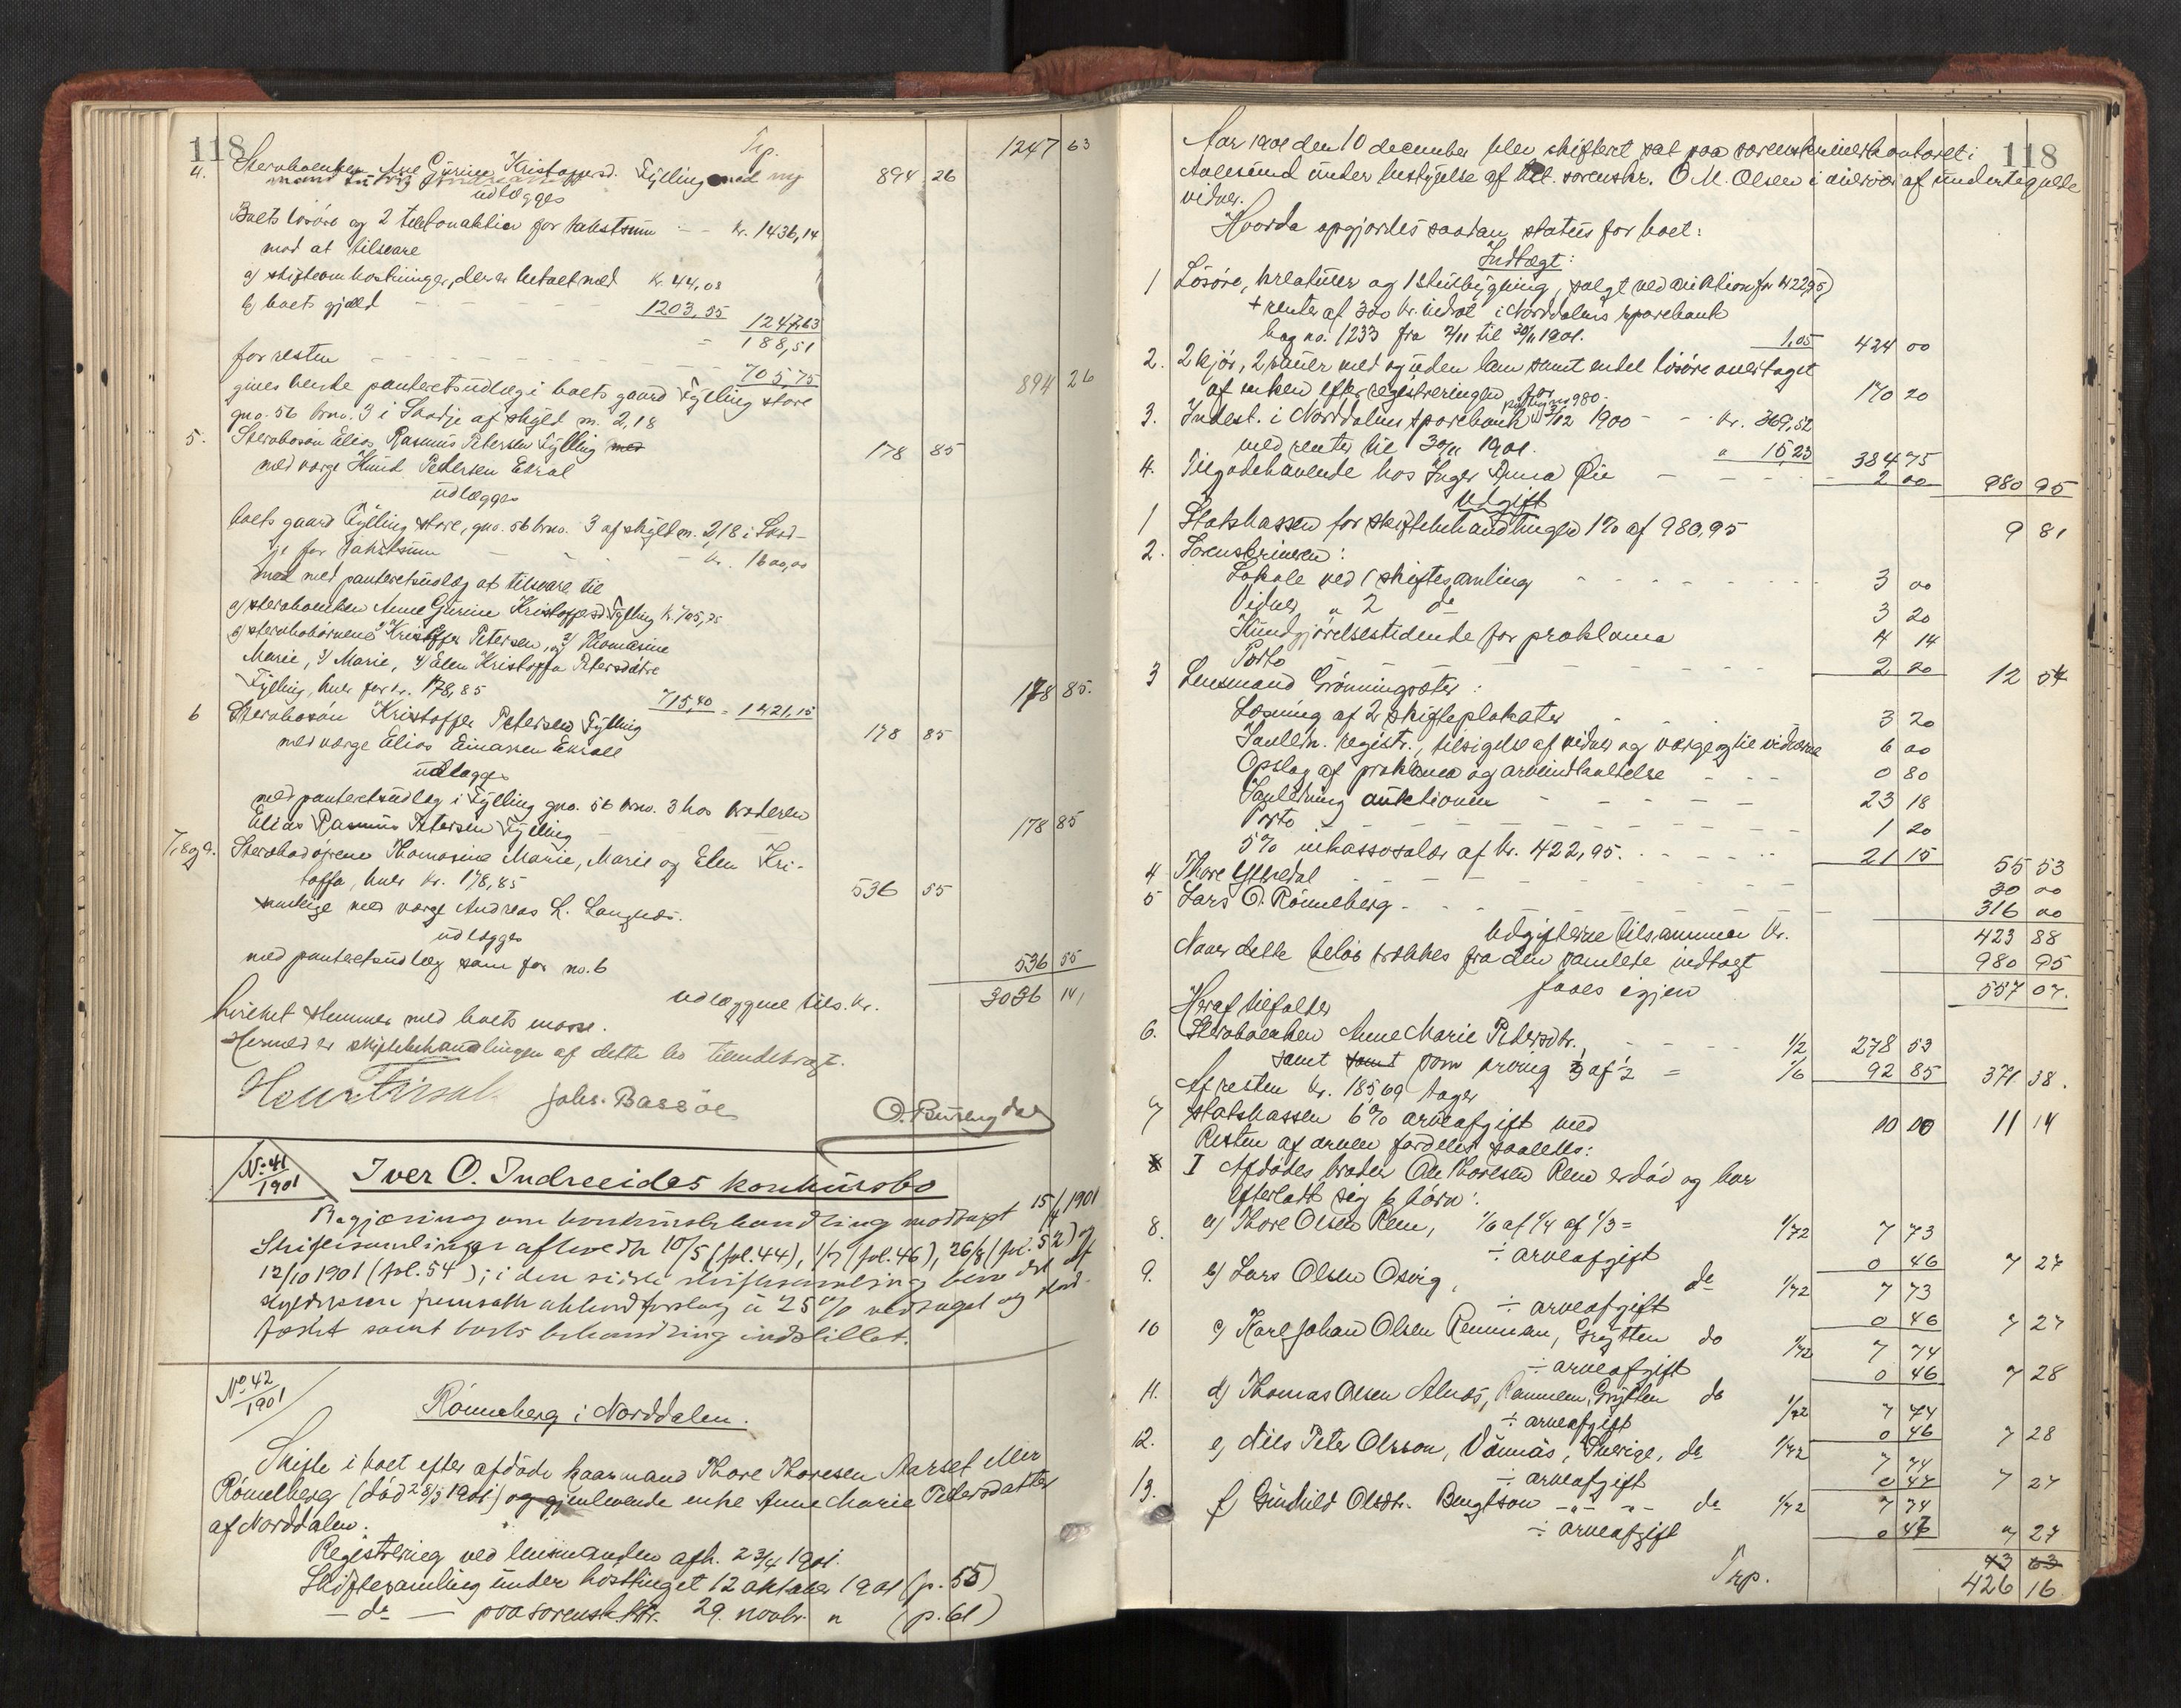 118
Trp. 1247 63
4. Sterboenken Ane Gurine Kristoffersd. Fylling med ny 894 26
mand
udlægges
Boets løsøre og 2 telefonaktier for takstsum - - kr. 1436,14
mod at tilsvare
a) skifteomkostninger, der er betalt med kr. 44,08
b) boets gjæld - - - 1203,55 1247,63
- 188,51
for resten - - - 705,75
gives hende panteretsudlæg i boets gaard Fylling store 894 26
gno. 56 brno. 3 i Skodje af skyld m. 2,18
5. Sterbosøn Elias Rasmus Petersen Fylling med 178 85
med værge Knud Pedersen Ekral
udlægges
boets gaard Fylling store, gno. 56 brno. 3 af skyld m. 2,18 i Skod-
je for takstsum - - - kr. 1600,00
mod med panteretsudlæg at tilsvare til
a) sterboenken Anne Gurine Kristoffersd. Fylling kr. 705,75
b) sterbobørnene 1) Kristoffer Petersen, 2) Thomasine
Marie, 3) Marie, 4) Elen Kristoffa Petersdøtre
Fylling, hver for kr. 178,85 715,40 = 1421,15 178 85.
6 Sterbosøn Kristoffer Petersen Fylling 178 85
med værge Elias Einarsen Ekrall
udlægges
med panteretsudlæg i Fylling gno. 56 brno. 3 hos broderen
Elias Rasmus Petersen Fylling 178 85
7, 8 og 9. Sterbodøtrene Thomasine Marie, Marie og Elen Kri-
stoffa, hver kr. 178,85 536 55
samtlige med værge Andreas L. Langnæs.
udlægges
med panteretsudlæg som for no. 6 536 55
udlæggene tils. kr. 3036 14
hvilket stemmer med boets masse.
Hermed er skiftebehandlingen af dette bo tilendebragt.
Johs. Bassøe O. Burengdal
No. 41/1901 Iver O. Indreeides konkursbo
Begjæring om konkursbehandling modtaget 15/4 1901
Skiftesamlinger afholdt 10/5 (fol. 44), 1/7 (fol. 46), 26/8 (fol. 52) og
12/10 1901 (fol. 54); i den sidste skiftesamling blev det af
skyldneren fremsatte akkordforslag à 25 % vedtaget og stad-
fæstet samt boets behandling indstillet.
No. 42/1901
Rønneberg i Norddalen.
Skifte i boet efter afdøde gaarmand Thore Thoresen Aarset eller
Rønneberg (død 28/3 1901) og gjenlevende enke Anne Marie Petersdatter
af Norddalen.
Registrering ved lensmanden afh. 23/4 1901.
Skiftesamling under høsttinget 12 oktober 1901 (p. 55)
- do - paa sorenskr.ktr. 29. novbr. " (p. 61)
118
Aar 1901 den 10 december blev skifteret sat paa sorenskriverkontoret i
Aalesund under bestyrelse af sorenskr. O. M. Olsen i nærvær af undertegnede
vidner.
Hvorda opgjordes saadan status for boet:
Indtægt:
1 Løsøre, kreaturer og 1 stuebygning, solgt ved auktion for kr 422,95
+ renter af 300 kr. indsat i Norddalens sparebank
bog no. 1233 fra 2/11 til 30/11 1901. 1,05 424 00
2. 2 kjør, 2 sauer med og uden lam samt endel løsøre overtaget
af enken efter registreringen for 170 20
3. Indest. i Norddalens sparebank 31/12 1900 - - kr. 369,52
med renter til 30/11 1901. " 15,23 384 75
4. Tilgodehavende hos Inger Anna Øie - - - 2 00 980 95
Udgift
1 Statskassen for skiftebehandlingen 1% af 980,95 9 81
2. Sorenskriveren:
Lokale ved 1 skiftesamling - - - 3 00
Vidner " 2 do 3 20
Kundgjørelsestidende for proklama 4 14
Porto - - - 2 20 12 54
3 Lensmand Grønningsæter:
Løsning af 2 skifteplakater - - 3 20
Forretn. registr., tilsigelse af vidner og værge og til vidnerne 6 00
Opslag af proklama og arveindkaldelse - - - 0 80
Foretning auktionen - - - 23 18
Porto - - - 1 20
5% inkassosalær af kr. 422,95. - - - 21 15 55 53
4 Thore Ytredal - - - 30 00
5 Lars O. Rønneberg - - - 316 00
Udgifterne tilsammen kr. 423 88
Naar dette beløb trækkes fra den samlede indtægt 980 95
faaes igjen 557 07.
Heraf tilfalder
6. Sterboenken Anne Marie Petersdtr., - - - 1/2 278 53
samt samt som arving 1/3 af 1/2 = 1/6 92 85 371 38.
Af resten kr. 185,69 tager
7 statskassen 6% arveafgift med 00 00 11 14
Resten af arven fordeles saaledes:
I Afdødes broder Ole Thoresen Rem er død og har
efterladt sig 6 børn:
8. a) Thore Olsen Rem, 1/6 af 1/4 af 1/3 = 1/72 7 73
÷ arveafgift 0 46 7 27
9. b) Lars Olsen Osvig, do 1/72 7 73
÷ arveafgift 0 46 7 27
10 c) Karl Johan Olsen Remman, Grytten do 1/72 7 74
÷ arveafgift 0 46 7 28
11. d) Thomas Olsen Alnæs, Remmem, Grytten do 1/72 7 74
÷ arveafgift 0 46 7 28
12. e) Nils Peter Olsson, Vännäs, Sverige, do 1/72 7 74
÷ arveafgift 0 47 7 27
13. f) Gunhild Olsdtr. Bengtson - " - " - do 1/72 7 74
÷ arveafgift 0 47 7 27
43 63
Trp. 426 16